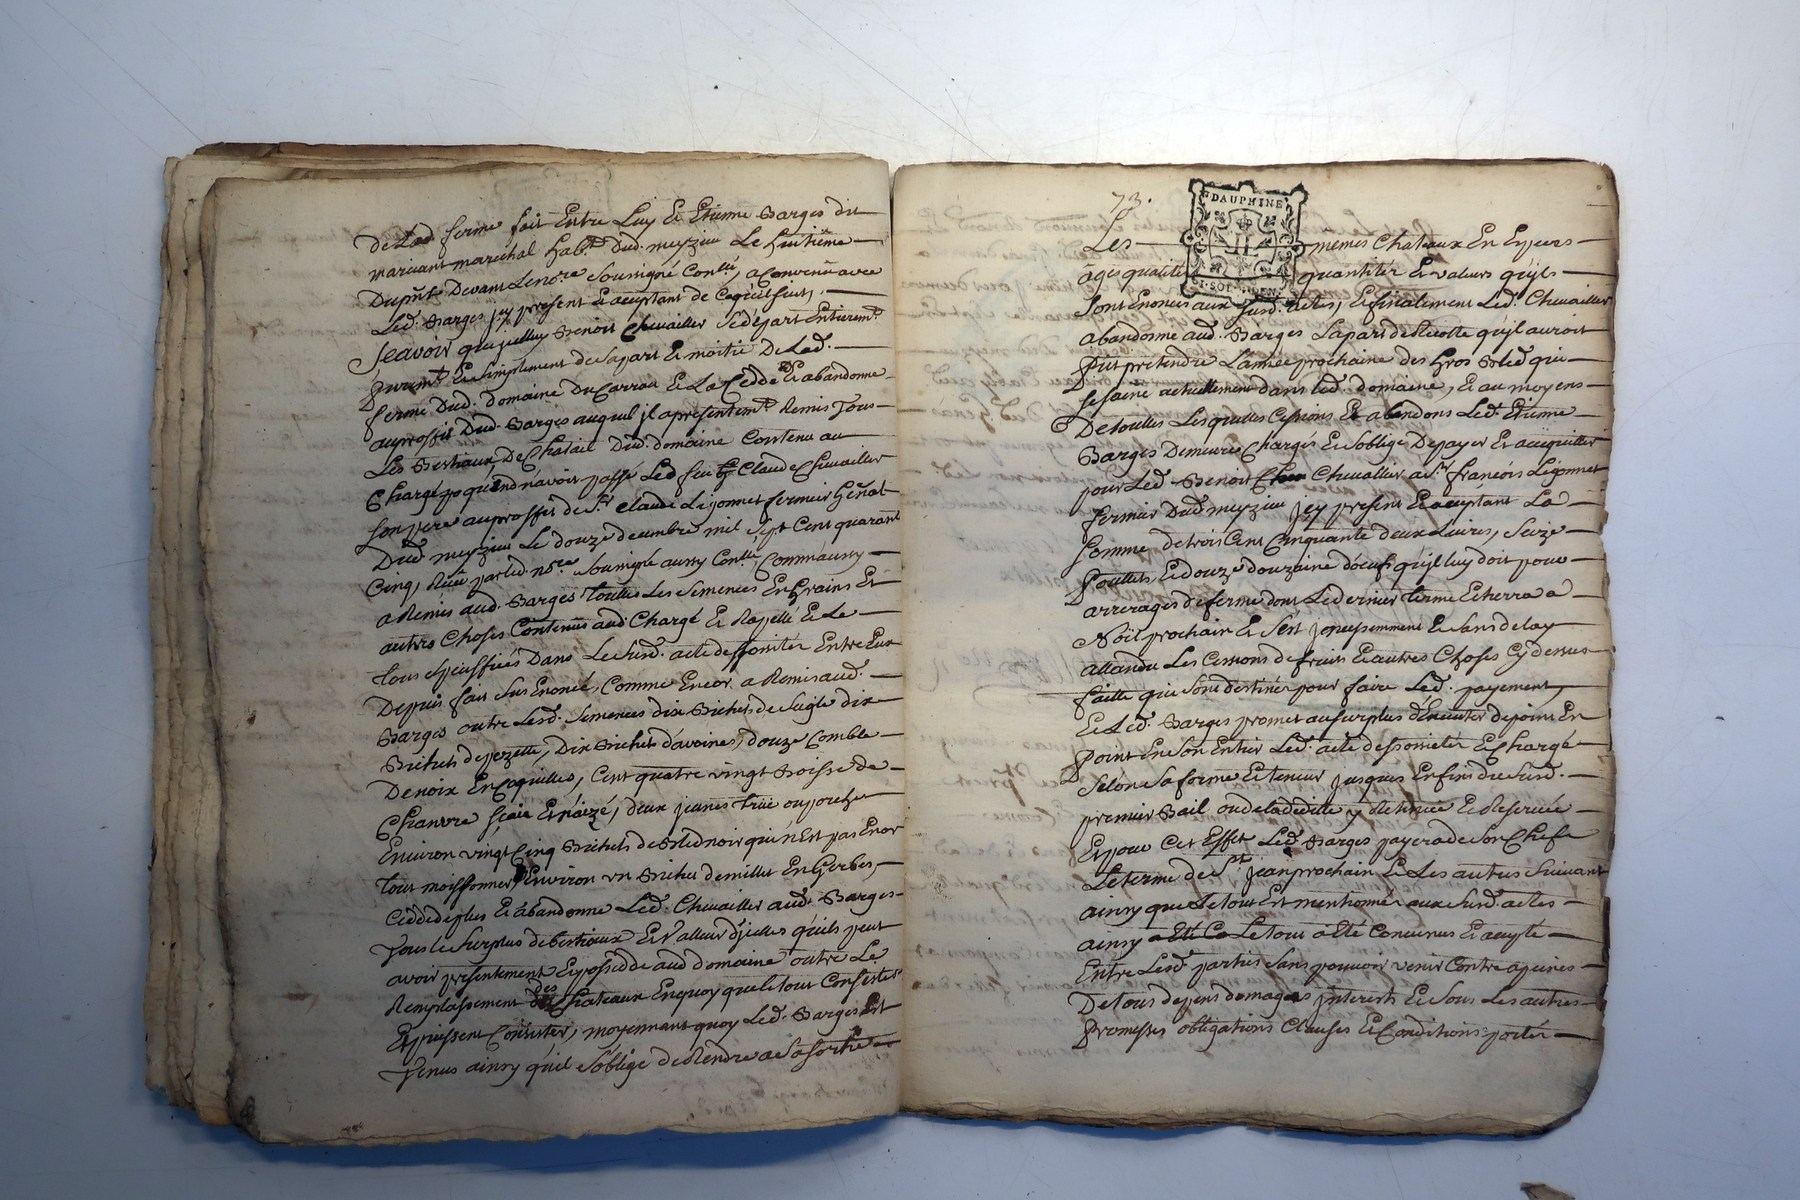 de lad ferme fait Entre Luy & Etienne Barges dit
marechal hab.t Dud. meyzieu Le huitième
Dup.nt Devant Le no.re Soussigné Con.lle, a Convenu avec
Led. Barges jcy present & aceptant de Ce qu'il suit,
Scavoir que jcelluy Benoit Chevallier Se départ Entierem.t
purem.t & Simplement de Sa part & moitié De Lad.
ferme Dud. domaine Du Carrou & La Cedde & abandonne
au proffit Dud. Barges auquel jl a presentem.t Remis Tous
Les Bestiaux, De Chatail Dud. domaine Contenu au
Chargé qu'en avoit passé Led feu Claude Chevallier
Son pere au proffit de S.r Claude Ligonnet fermier
Dud meyzieu Le douze decembre mil Sept Cent quarant
Cinq, Receu par led. no.re Soussigné aussy Con.lle, Comm'aussy
a Remis aud. Barges Toutes Les Semences En grains Et
autres Choses Contenus aud. Chargé & Rapellé & Le
tous Speciffiés Dans Le Susd. acte de Entre Eux
Depuis fait Sus Enoncé, Comme Encor a Remis aud.
Barges outre Lesd. Semences dix Bichets de Seigle dix
Bichets de pezette, Dix Bichets d'avoines, douze Comble
De noix En Coquilles, Cent quatre vingt de
Chanvre deux jeunes truie ou porches
Environ vingt Cinq Bichets de Bled noir qui n'Est pas Encor
tout moissonner, Environ un Bichet de millet En Gerbes,
Cedde de plus & abandonne Led. Chevallier aud. Barges
tous le Surplus de bestiaux & Valleur d'jcelles qu'ils peut
avoir presentement & possedde aud domaine outre Le
Remplassement des Chateaux En quoy que le tout Consiste
Et puissent Consister, moyennant quoy Led. Barges Est
Venus ainsy qu'il S'oblige de Rendre a Sa Sortie
73.
DAUPHINE
Les mêmes Chateaux En Especes
ages qualité quantités & valeurs qu'ils
Sont Enoncés aux Susd. actes, & finalement Led. Chevallier
abandonne aud. Barges La part de Recolte qu'jl auroit
put pretendre L'année prochaine des gros Bled qui
actuellement dans led. domaine, & au moyens
De toutes Lesquelles Cessions & abandons Led. Etienne
Barges Demeure Chargés & S'oblige De payer Et acquitter
pour Led. Benoit Chevallier a S.r francois Ligonnet
fermier Dud meyzieu jcy present & aceptant La
Somme de trois Cent Cinquante deux Livres, Seize
Poullets & douze douzaine d'oeufs qu'jl luy doit pour
arrerages de ferme dont Le dernier terme Echerra a
Noël prochain & Sans delay
attandu Les Cessions de fruits & autres Choses Cy dessus
faitte qui Sont destinés pour faire Led. payement,
& Led. Barges promet au Surplus d'Executer de point En
point En Son Entier Led. acte de & Chargé
Selon Sa forme & teneur jusques En fin du Susd.
premier Bail ou de la decidte y Retenue & Reservée
Et pour Cet Effet Led. Barges payera de Son Chefs
Le terme de S.t jean prochain & Les autres Suivant
ainsy que Le tout Est mentionnés aux Susd. actes
ainsy Le tout a Eté Convenus & accepté
Entre Lesd. parties Sans pouvoir venir Contre a peines
De tous depens domages jnterets & Sous Les autres
Promesses obligations Clauses & Conditions portés